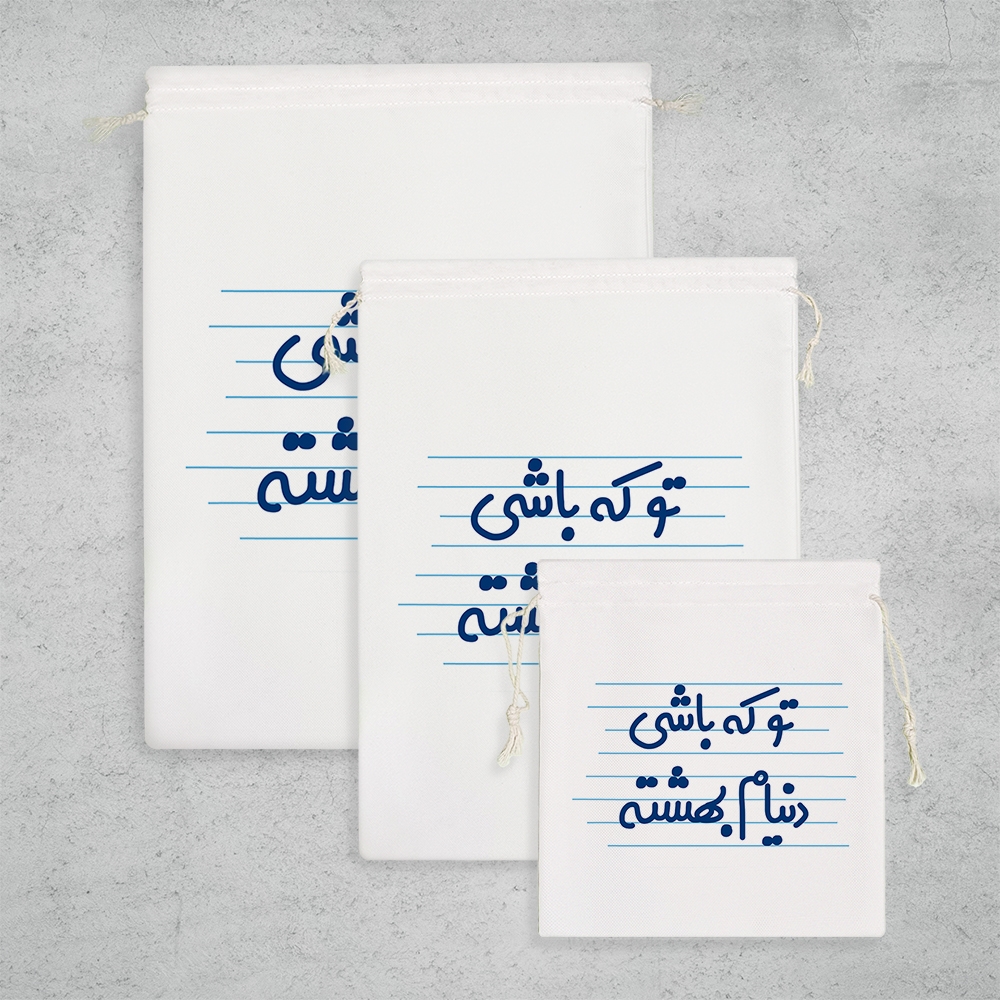 شی
شته
تو که باشی
شته
تو که باشی
دنیام بهشته